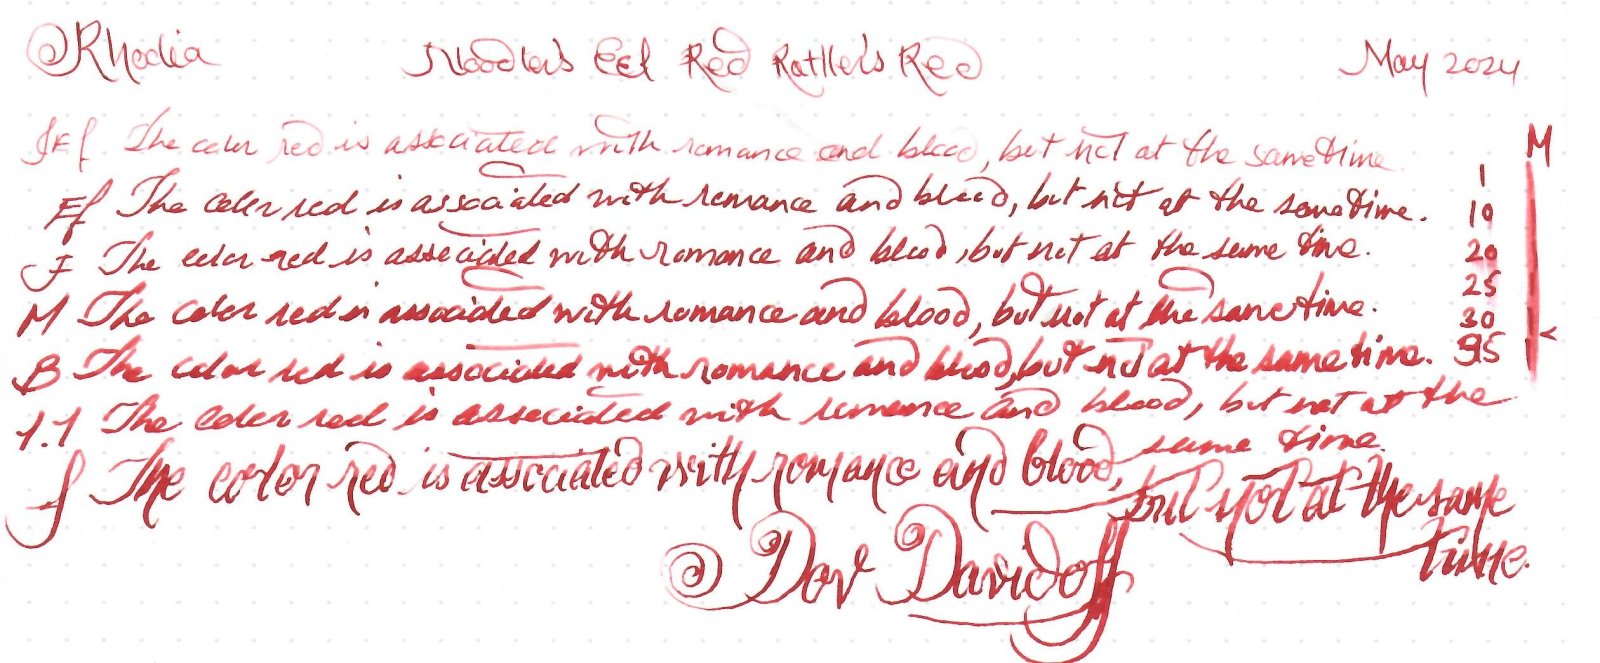 @Rhodia Noodler's Eel Red Rattler's Red May 2024
M
JEf The color red is associated with romance and blood, but not at the same time
1
Ef The color red is associated with romance and blood, but not at the same time. 10
F The color red is associated with romance and blood, but not at the same time. 20
25
M The color red is associated with romance and blood, but not at the same time. 30
B The color red is associated with romance and blood, but not at the same time. 35
1.1 The color red is associated with romance and blood, but not at the
same time.
f The color red is associated with romance and blood,
but not at the same
time.
@ Dov Davidoff